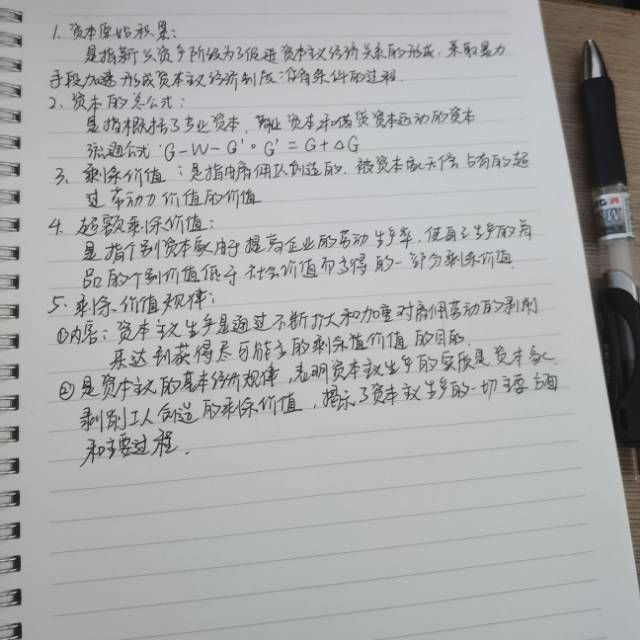 1. 资本原始积累:
是指新兴资产阶级为了促进资本主义经济关系的形成,采取暴力
手段加速形成资本主义经济制度所有条件的过程.
2. 资本的总公式:
是指概括了产业资本,商业资本和借贷资本运动的资本
流通公式:G-W-G'。G'=G+ΔG
3. 剩余价值:是指由雇佣工人创造的,被资本家无偿占有的超
过劳动力价值的价值
4. 超额剩余价值:
是指个别资本家由于提高企业的劳动生产率,使自己生产的商
品的个别价值低于社会价值而多得的一部分剩余价值.
5. 剩余价值规律:
①内容:资本主义生产是通过不断扩大和加重对雇佣劳动的剥削
来达到获得尽可能多的剩余价值 的目的.
②是资本主义的基本经济规律,表明资本主义生产的实质是资本家
剥削工人创造的剩余价值,揭示了资本主义生产的一切主要方面
和主要过程.